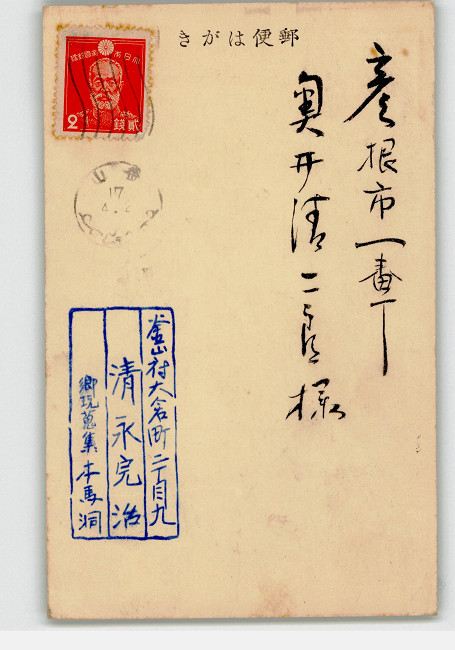 郵便はがき
大日本帝國郵便
2 貳錢
釜山
17
彦根市一番丁
奥井清二良様
釜山府大倉町二丁目九
清永完治
郷玩蒐集 本馬洞